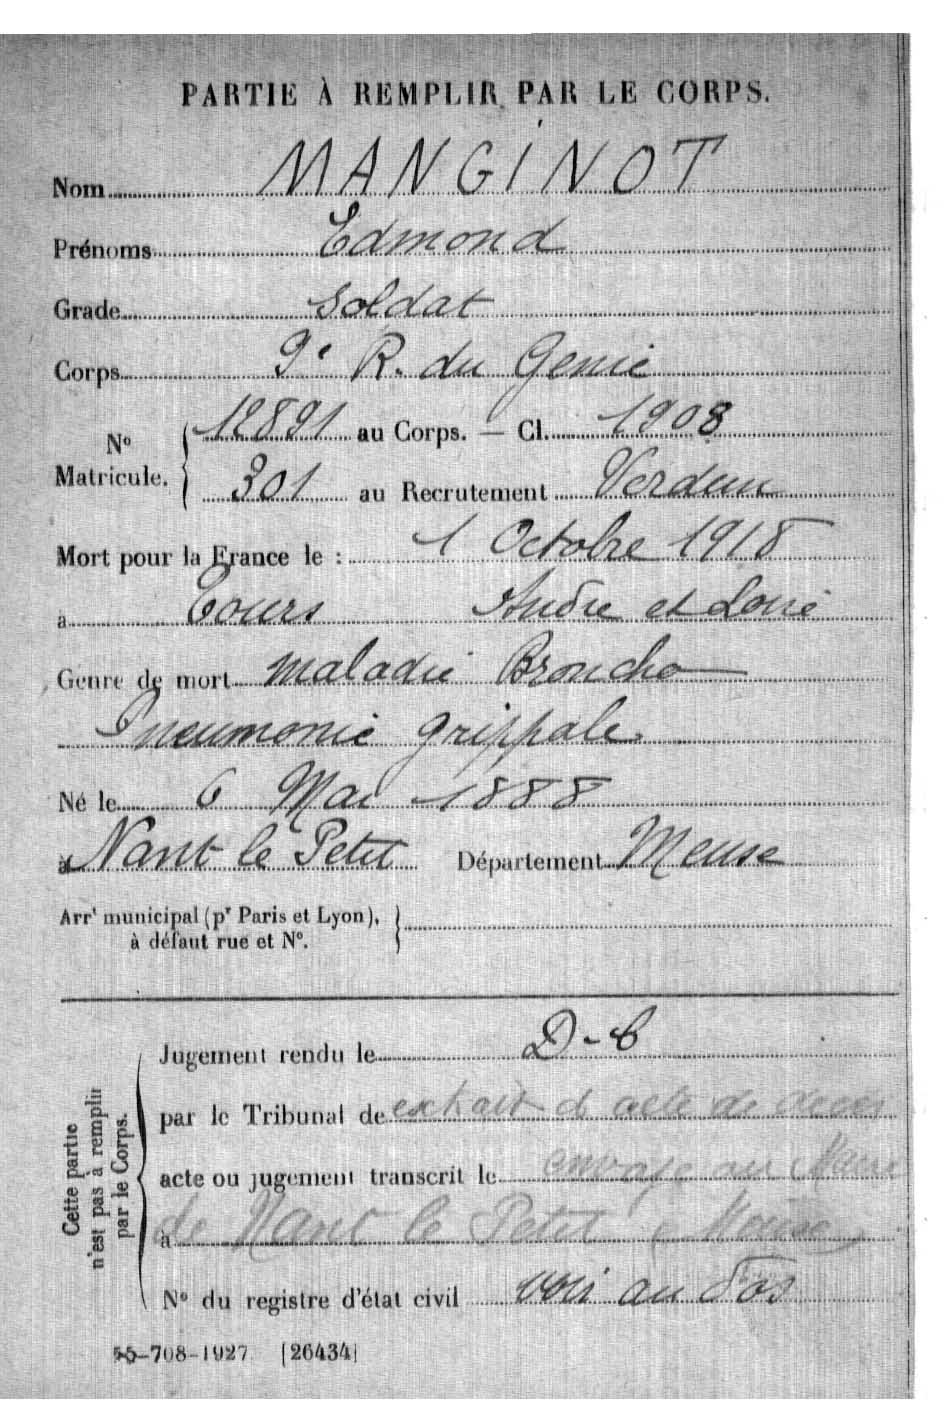 PARTIE À REMPLIR PAR LE CORPS.
Nom MANGINOT
Prénoms Edmond
Grade Soldat
Corps 9e R. du Genie
No Matricule. { 12891 au Corps. — Cl. 1908
301 au Recrutement Verdun
Mort pour la France le : 1 Octobre 1918
à Tours Indre et Loire
Genre de mort maladie Broncho
Pneumonie grippale.
Né le 6 Mai 1888
à Nant le Petit Département Meuse
Arrt municipal (pr Paris et Lyon),
à défaut rue et No. }
Cette partie
n'est pas à remplir
par le Corps.
Jugement rendu le D-C
par le Tribunal de extrait d acte de deces
acte ou jugement transcrit le envoye au Maire
à de Nant le Petit (Meuse)
No du registre d'état civil voir au dos
55-708-1927. [26434]